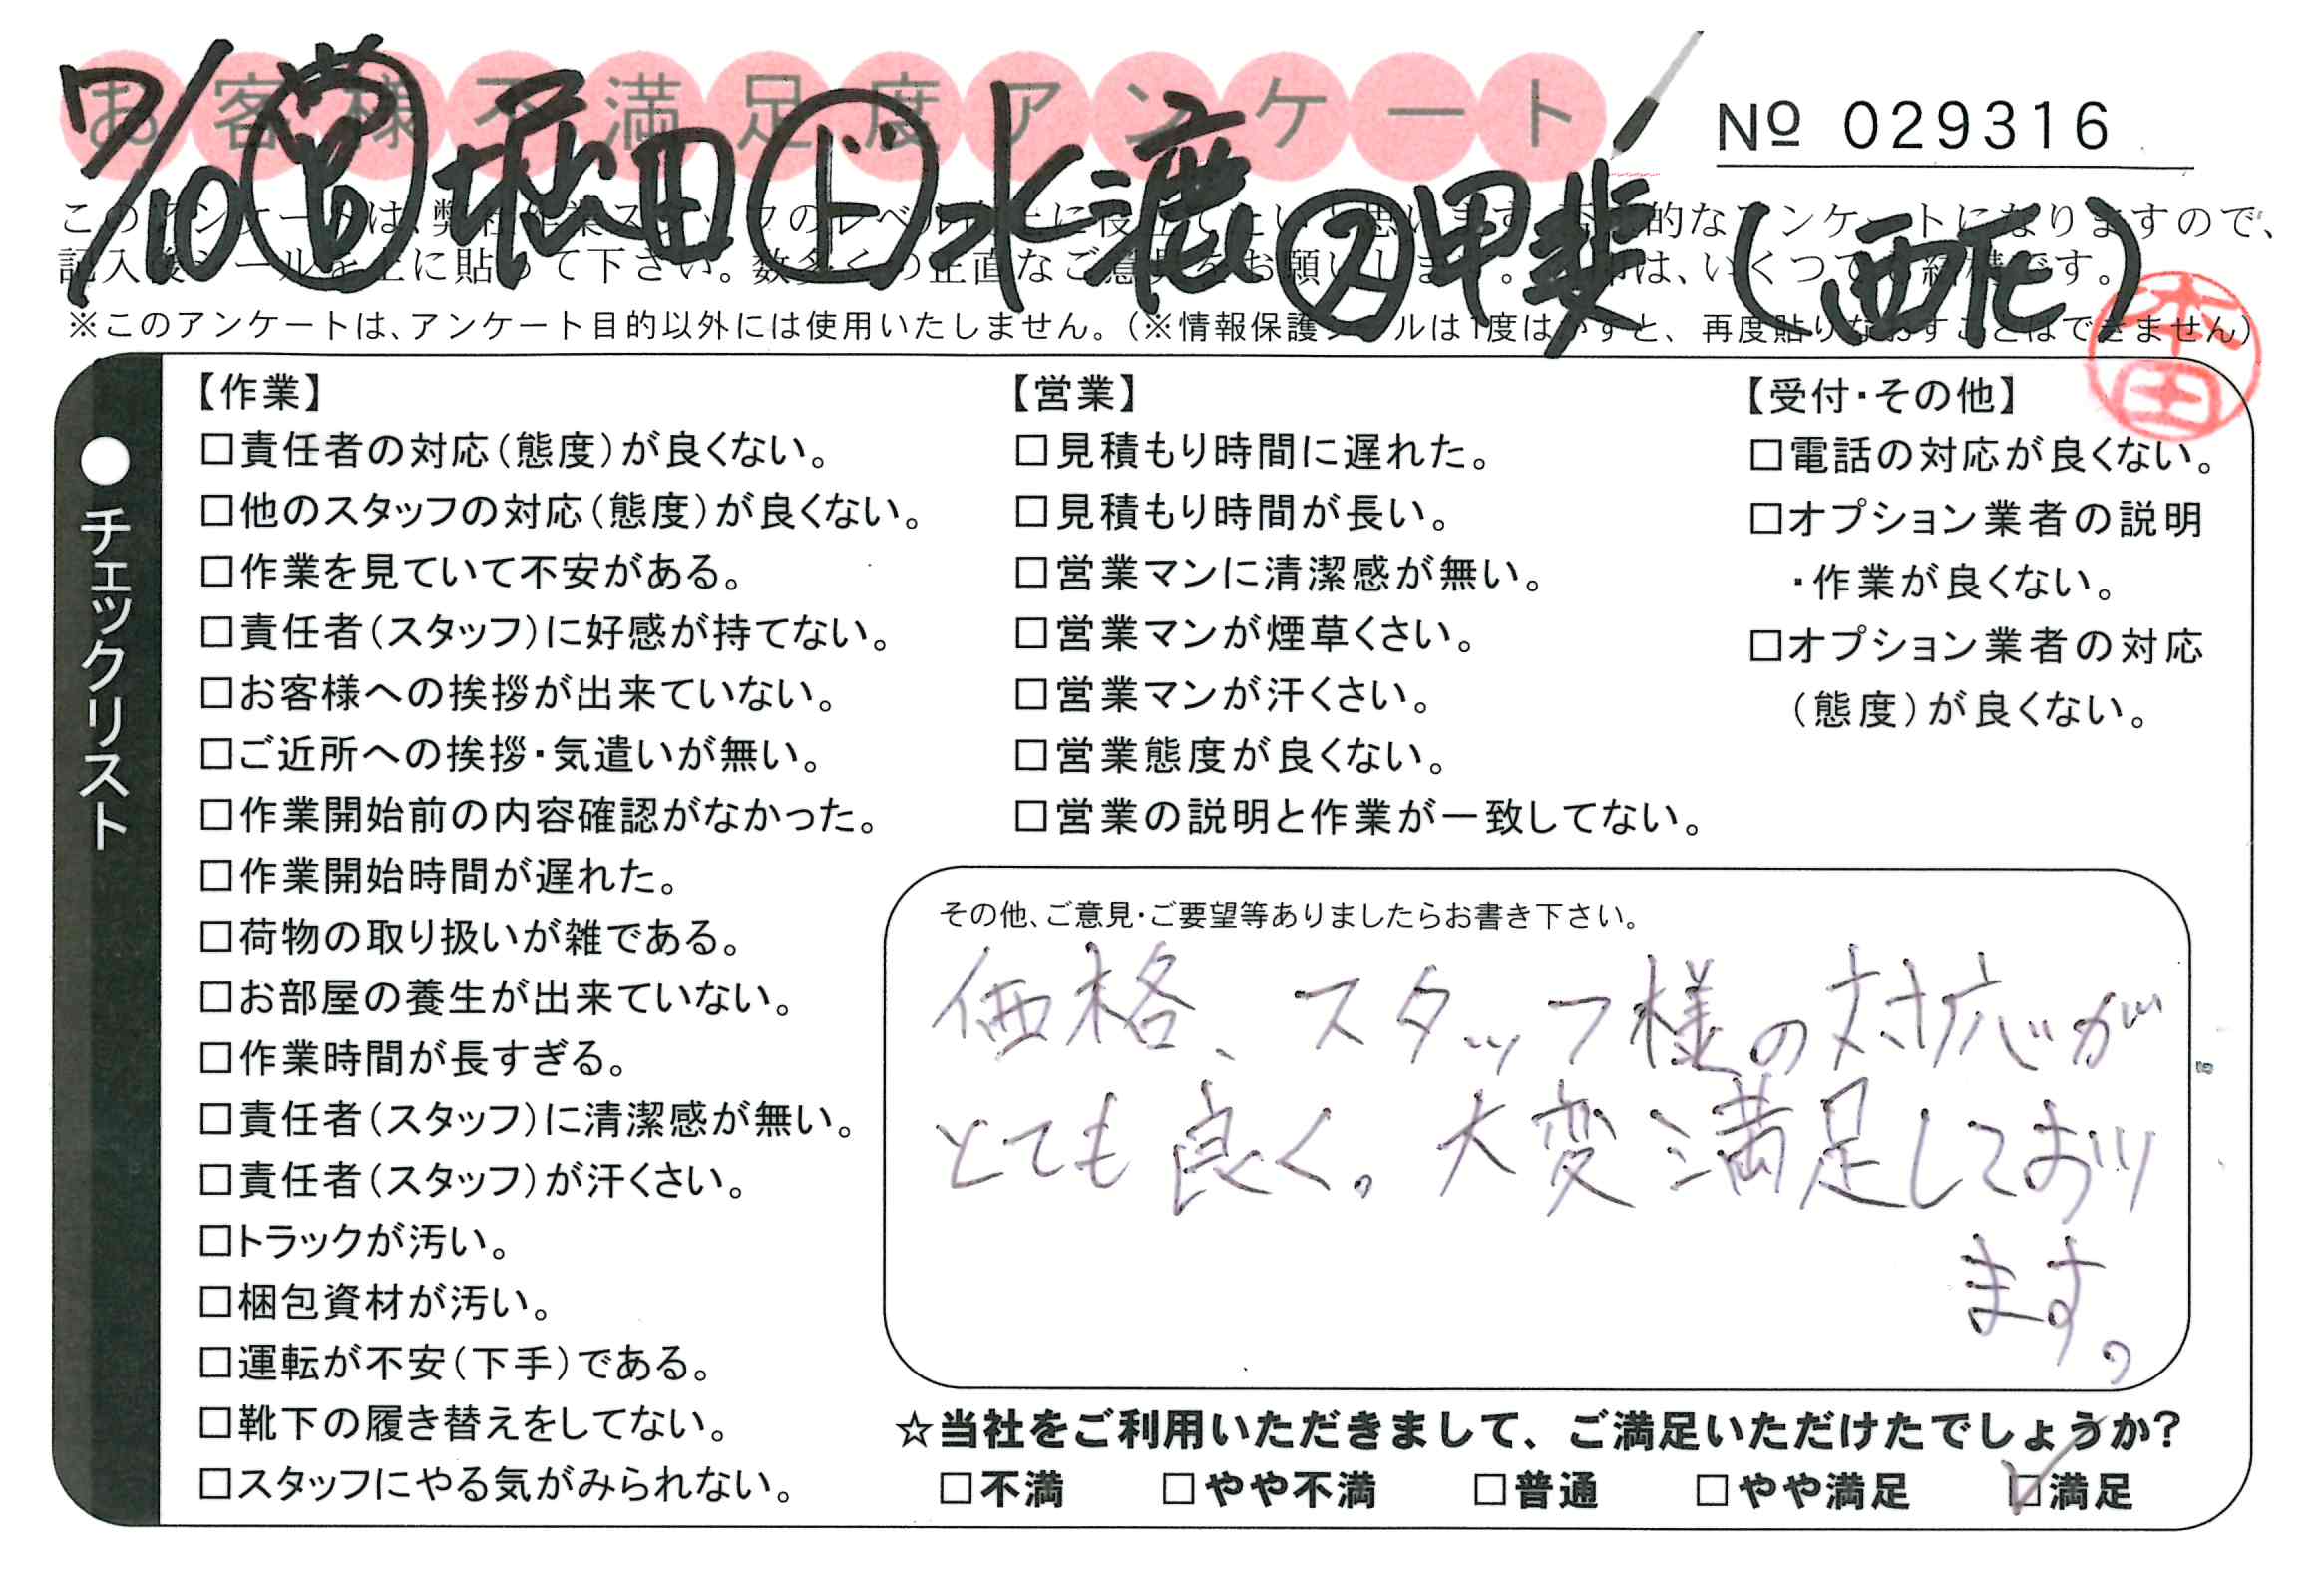 お客様不満足度アンケート
№ 029316
7/10 営 堀田 ド 水漉 ス 甲斐 (西尾)
このアンケートは、弊社作業スタッフのレベル向上に役立てたいと思います。不定期的なアンケートになりますので、
記入後シールを上に貼って下さい。数多くの正直なご意見をお願いします。は、いくつでも結構です。
※このアンケートは、アンケート目的以外には使用いたしません。(※情報保護シールは1度はがすと、再度貼りなおすことはできません)
本田
●チェックリスト
【作業】
□責任者の対応(態度)が良くない。
□他のスタッフの対応(態度)が良くない。
□作業を見ていて不安がある。
□責任者(スタッフ)に好感が持てない。
□お客様への挨拶が出来ていない。
□ご近所への挨拶・気遣いが無い。
□作業開始前の内容確認がなかった。
□作業開始時間が遅れた。
□荷物の取り扱いが雑である。
□お部屋の養生が出来ていない。
□作業時間が長すぎる。
□責任者(スタッフ)に清潔感が無い。
□責任者(スタッフ)が汗くさい。
□トラックが汚い。
□梱包資材が汚い。
□運転が不安(下手)である。
□靴下の履き替えをしてない。
□スタッフにやる気がみられない。
【営業】
□見積もり時間に遅れた。
□見積もり時間が長い。
□営業マンに清潔感が無い。
□営業マンが煙草くさい。
□営業マンが汗くさい。
□営業態度が良くない。
□営業の説明と作業が一致してない。
【受付・その他】
□電話の対応が良くない。
□オプション業者の説明
・作業が良くない。
□オプション業者の対応
(態度)が良くない。
その他、ご意見・ご要望等ありましたらお書き下さい。
価格、スタッフ様の対応が
とても良く。大変満足しており
ます。
☆当社をご利用いただきまして、ご満足いただけたでしょうか?
□不満 □やや不満 □普通 □やや満足 ☑満足